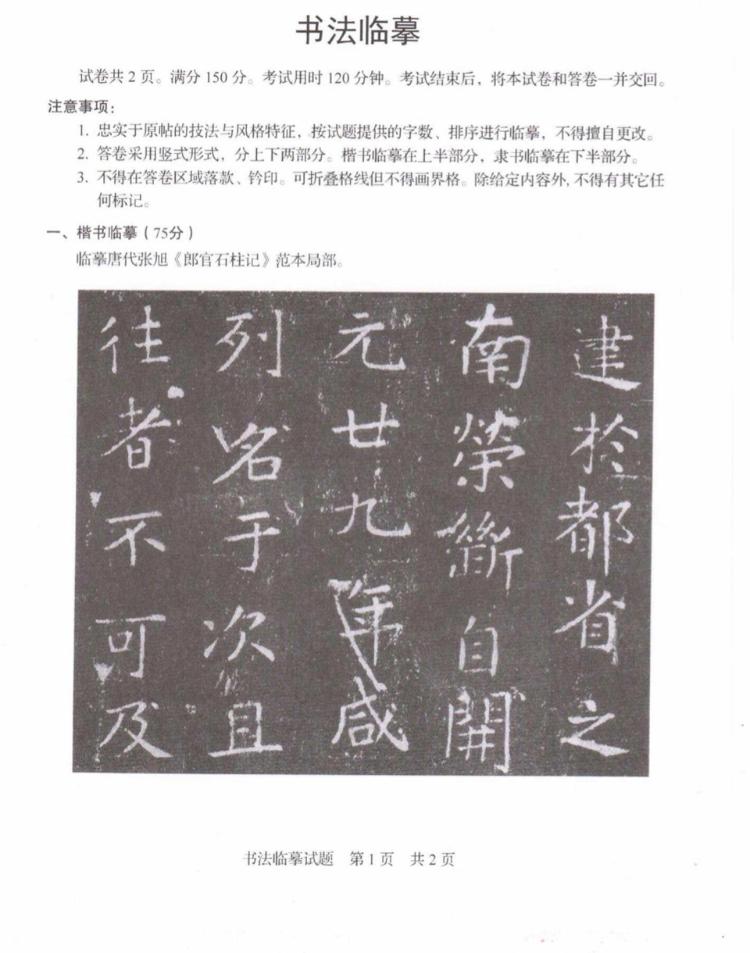 书法临摹
试卷共 2 页。满分 150 分。考试用时 120 分钟。考试结束后，将本试卷和答卷一并交回。
注意事项：
1. 忠实于原帖的技法与风格特征，按试题提供的字数、排序进行临摹，不得擅自更改。
2. 答卷采用竖式形式，分上下两部分。楷书临摹在上半部分，隶书临摹在下半部分。
3. 不得在答卷区域落款、钤印。可折叠格线但不得画界格。除给定内容外，不得有其它任
何标记。
一、楷书临摹（75分）
临摹唐代张旭《郎官石柱记》范本局部。
建於都省之
南榮斷自開
元廿九年咸
列名于次且
往者不可及
书法临摹试题 第 1 页 共 2 页